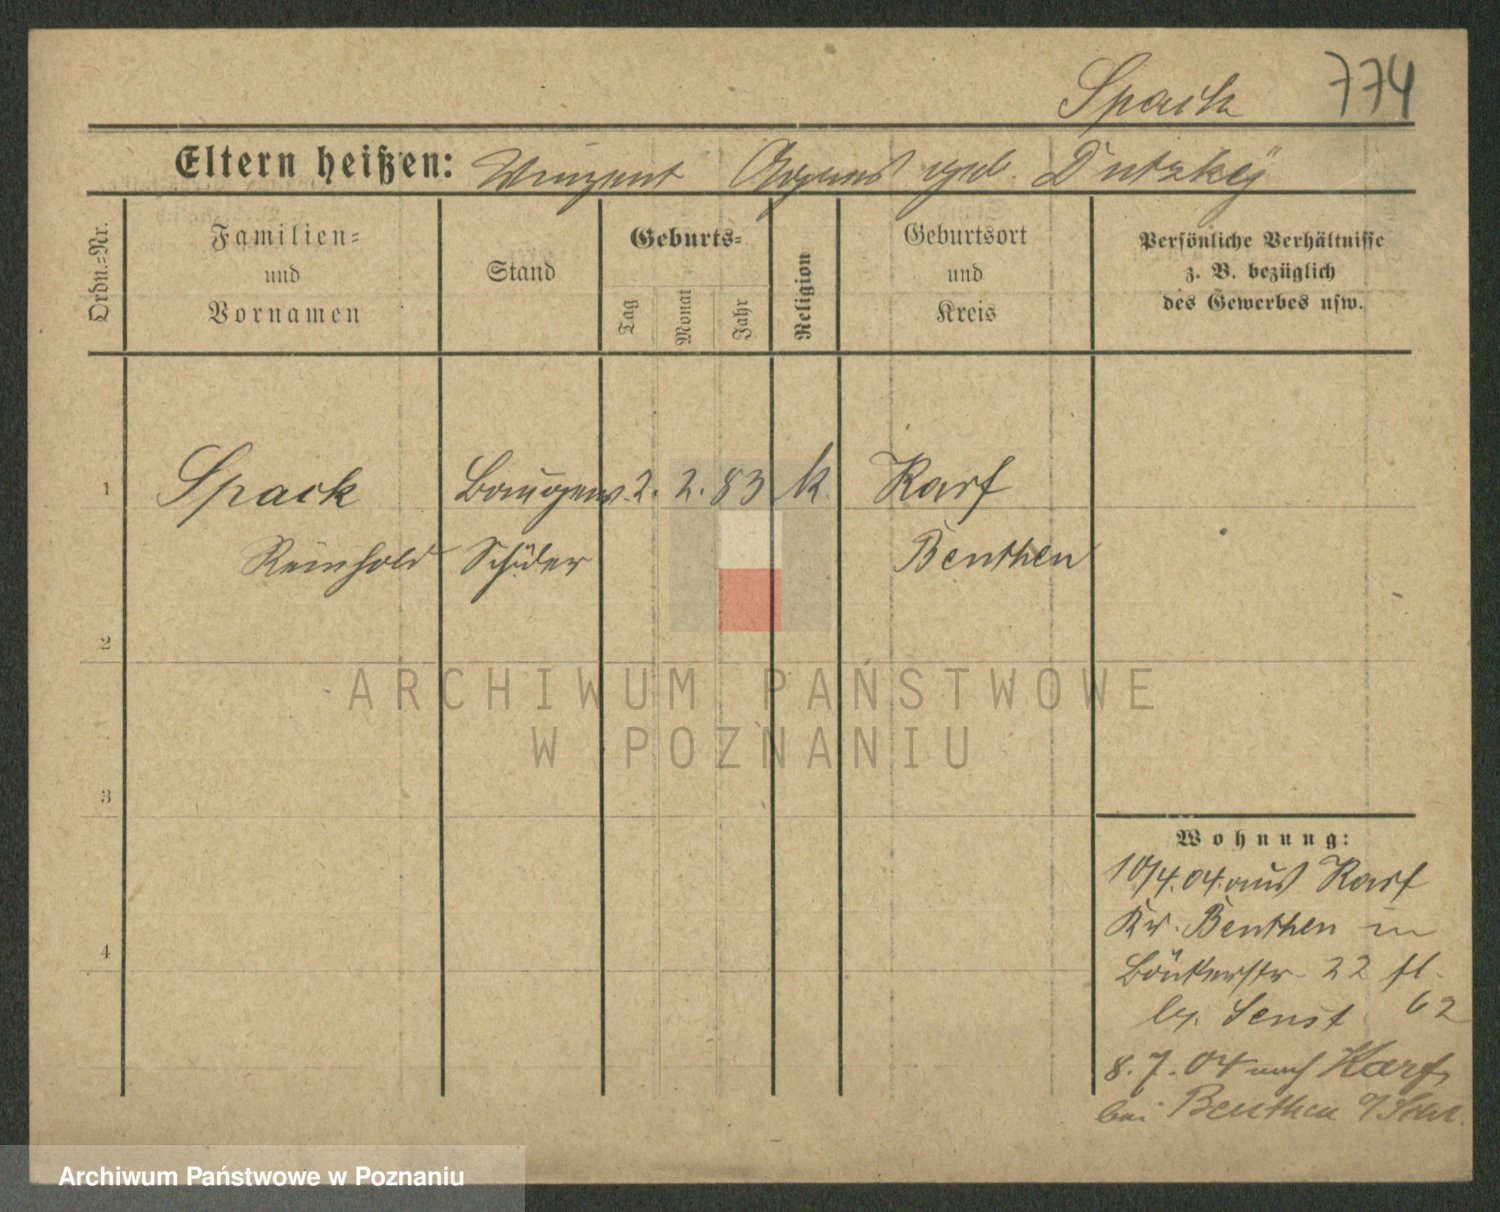 Spack 774
Eltern heißen: Vinzent Agnes geb. Dutzky
Ordn.-Nr.
Familien-
und
Vornamen
Stand
Geburts-
Tag
Monat
Jahr
Religion
Geburtsort
und
Kreis
Persönliche Verhältnisse
z. B. bezüglich
des Gewerbes usw.
1 Spack Baugew. 2. 2. 83 k Karf
Reinhold Schüler Beuthen
2
3
4
Wohnung:
10/4.04. aus Karf
Kr. Beuthen in
22
62
8. 7. 04 nach Karf
bei Beuthen O/Schl.
ARCHIWUM PAŃSTWOWE
W POZNANIU
Archiwum Państwowe w Poznaniu